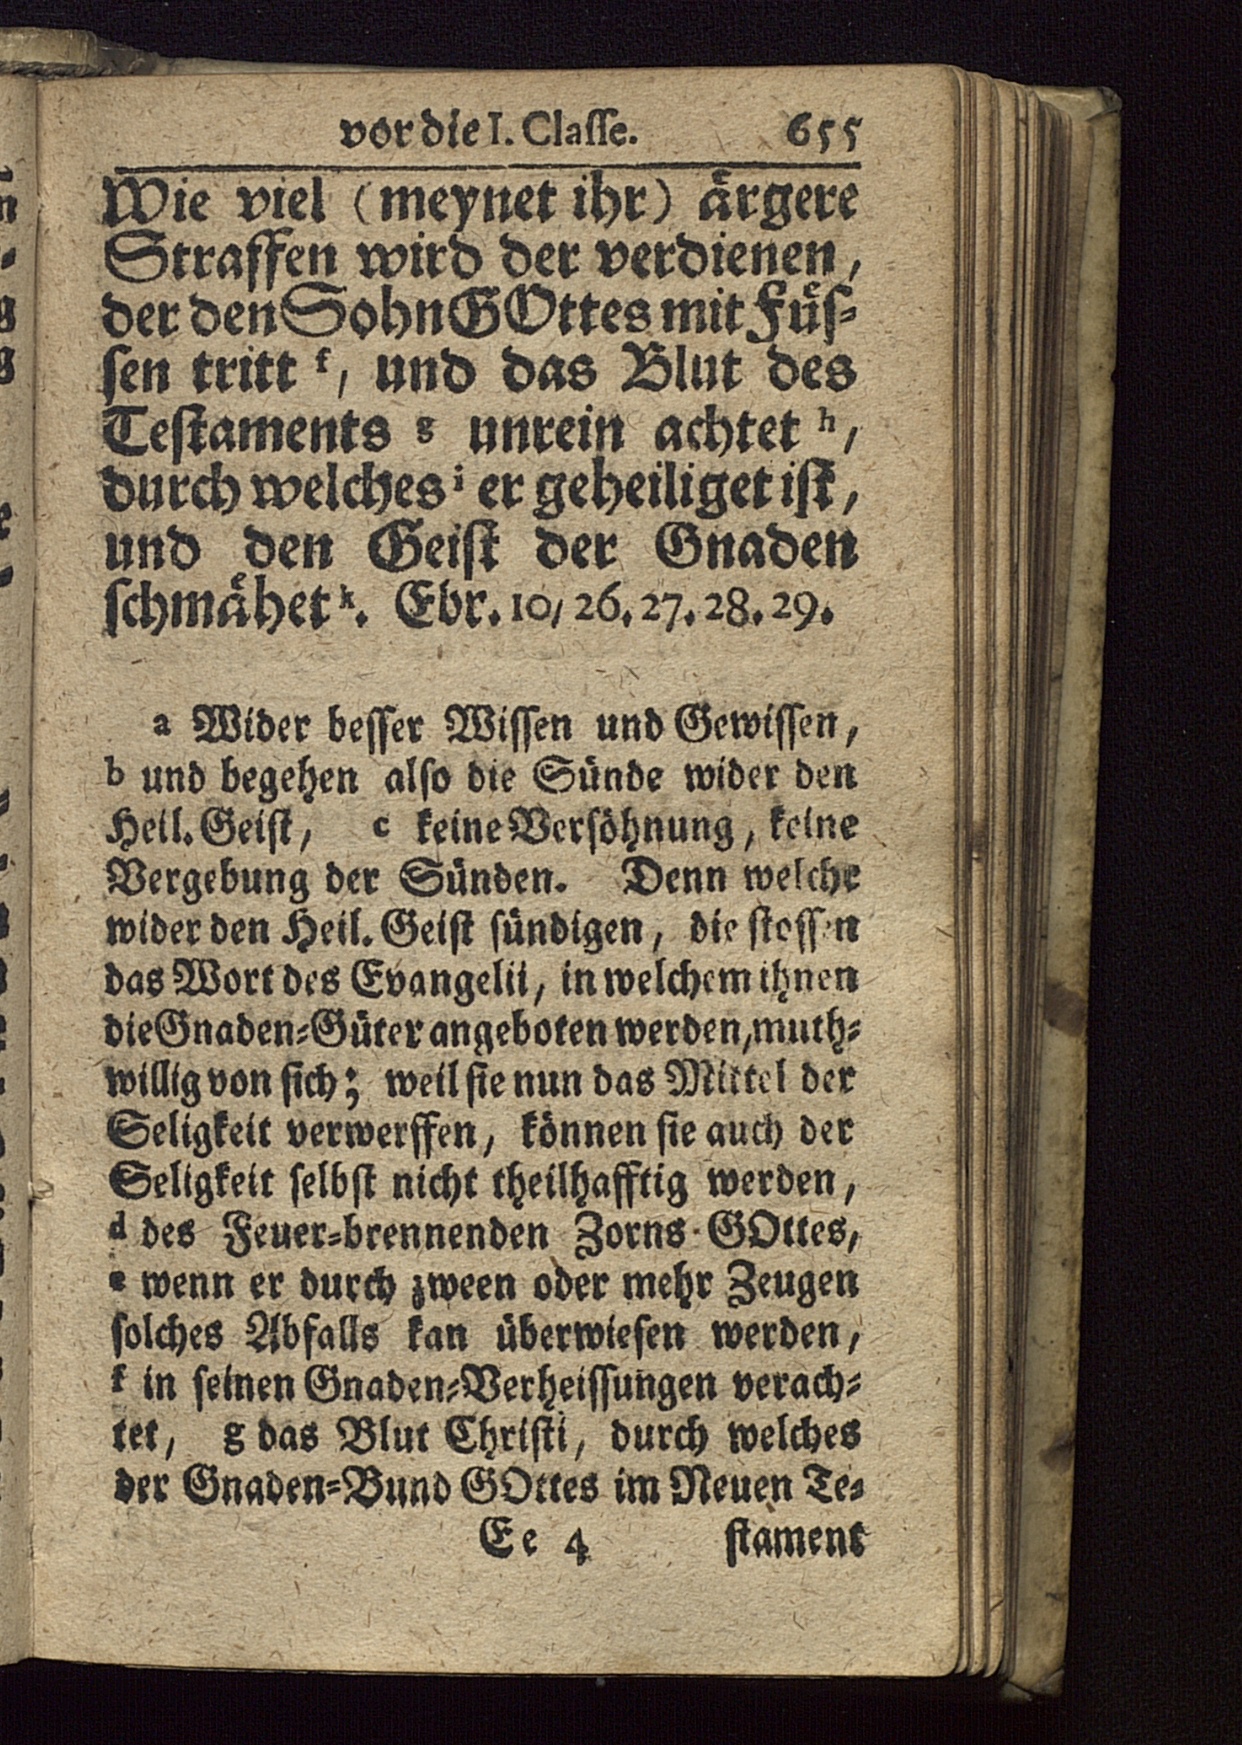 vor die I. Classe. 655
Wie viel (meynet ihr) ärgere
Straffen wird der verdienen,
der den Sohn GOttes mit Füs-
sen tritt f, und das Blut des
Testaments g unrein achtet h,
durch welches i er geheiliget ist,
und den Geist der Gnaden
schmähet k. Ebr. 10, 26. 27. 28. 29.
a Wider besser Wissen und Gewissen,
b und begehen also die Sünde wider den
Heil. Geist, c keine Versöhnung, keine
Vergebung der Sünden. Denn welche
wider den Heil. Geist sündigen, die stossen
das Wort des Evangelii, in welchem ihnen
die Gnaden-Güter angeboten werden, muth-
willig von sich; weil sie nun das Mittel der
Seligkeit verwerffen, können sie auch der
Seligkeit selbst nicht theilhafftig werden,
d des Feuer-brennenden Zorns GOttes,
e wenn er durch zween oder mehr Zeugen
solches Abfalls kan überwiesen werden,
f in seinen Gnaden-Verheissungen verach-
tet, g das Blut Christi, durch welches
der Gnaden-Bund GOttes im Neuen Te-
Ee 4 stament